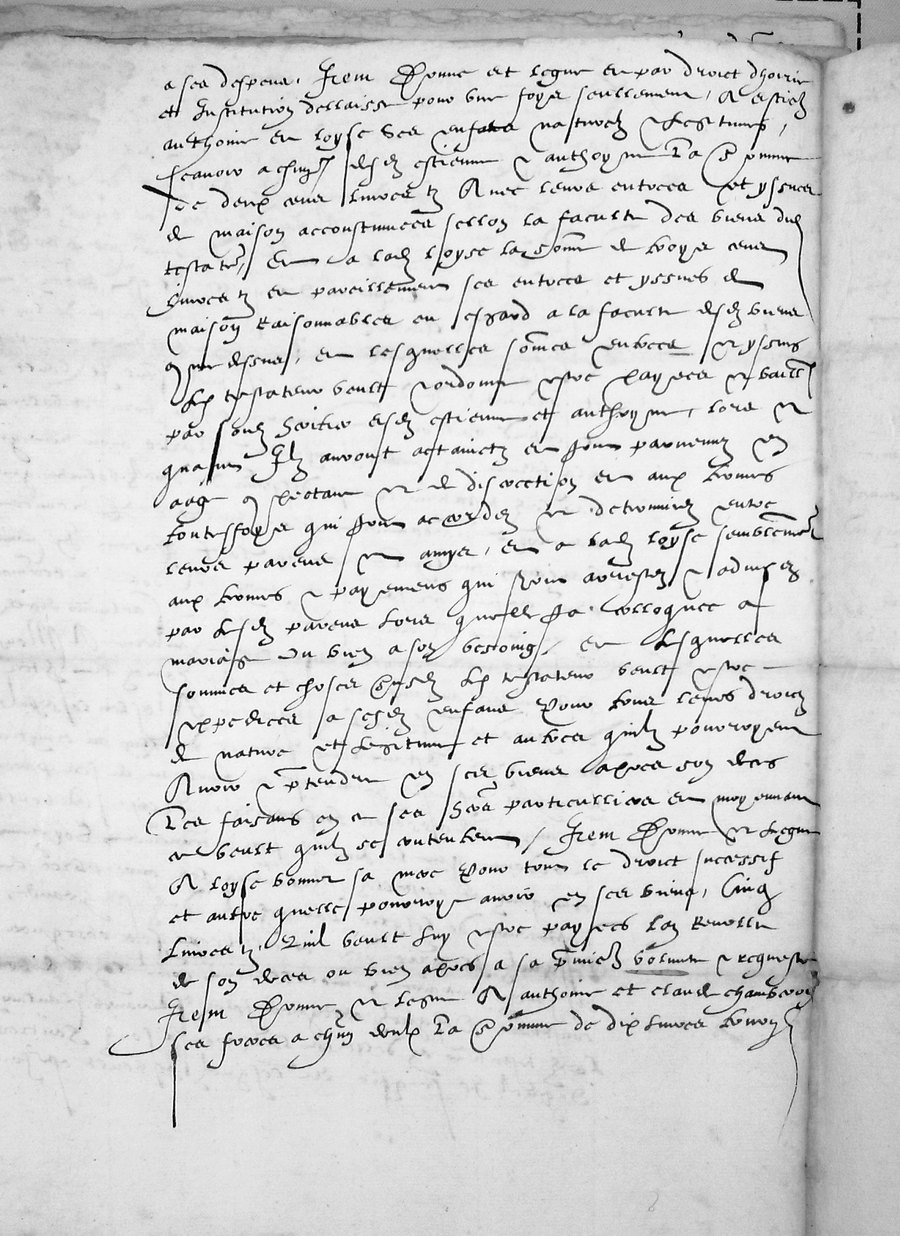 a ses despens, Item donne et legue et par droict dhoirie
et Institution dellaisse pour une foys seullement, A estien
anthoine et loyse ses enfans naturelz et legitimes,
scavoir a chun desd estienne et anthoyne la somme
de deux cens livres tz Avec leurs entrees et yssues
de maison accoustumees sellon la faculte des biens dud
testateur, Et a lad loyse la somme de troys cens
livres tz et pareillement ses entrees et yssues de
maison Raisonnables eu esgard a la faculte desd biens
que dessus, et lesquelles sommes entrees et yssues
led testateur veult et ordonne estre payees et baill
par sond heritier esd estienne et anthoyne, lors et
quant Ilz auront actainctz et seront parvenuz en
aage et de discretion et aux termes
qui seront accordez et determinez entre
leurs parens et amys, et a lad loyse semblement
aux termes et payemens qui seront arrestez et advisez
par lesd parens lors quelle sera colloquee a
mariage ou bien a son besoing, et lesquelles
sommes et choses susd led testateur veult estre
expediees a sesd enfans pour tous leurs droictz
de nature et legitime et autres quilz pourroyent
Avoir et ptendre en ses biens apres son deces
les faisans en ce ses hers particulliers et moyennant
ce veult quilz se contentent, Item donne et legue
A loyse bonne sa mere pour tout le droict successif
et autre quelle pourroye avoir en ses biens, Cinq
livres tz, quil veult luy estre payees lan Revollu
de son deces ou bien apres a sa pmiere volunte et requeste
Item donne et legue A anthoine et claude
ses freres a chun deulx la somme de dix livres tourn